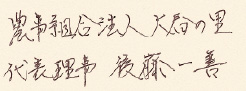 農事組合法人 大谷の里
代表理事 後藤一善